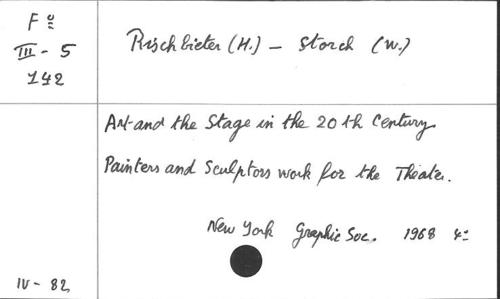 Fº
III - 5
142
Rischbieter (H.) - Storch (W.)
Art and the Stage in the 20 th Century.
Painters and Sculptors work for the Theater.
New York Graphic Soc. 1968 4º
IV - 82